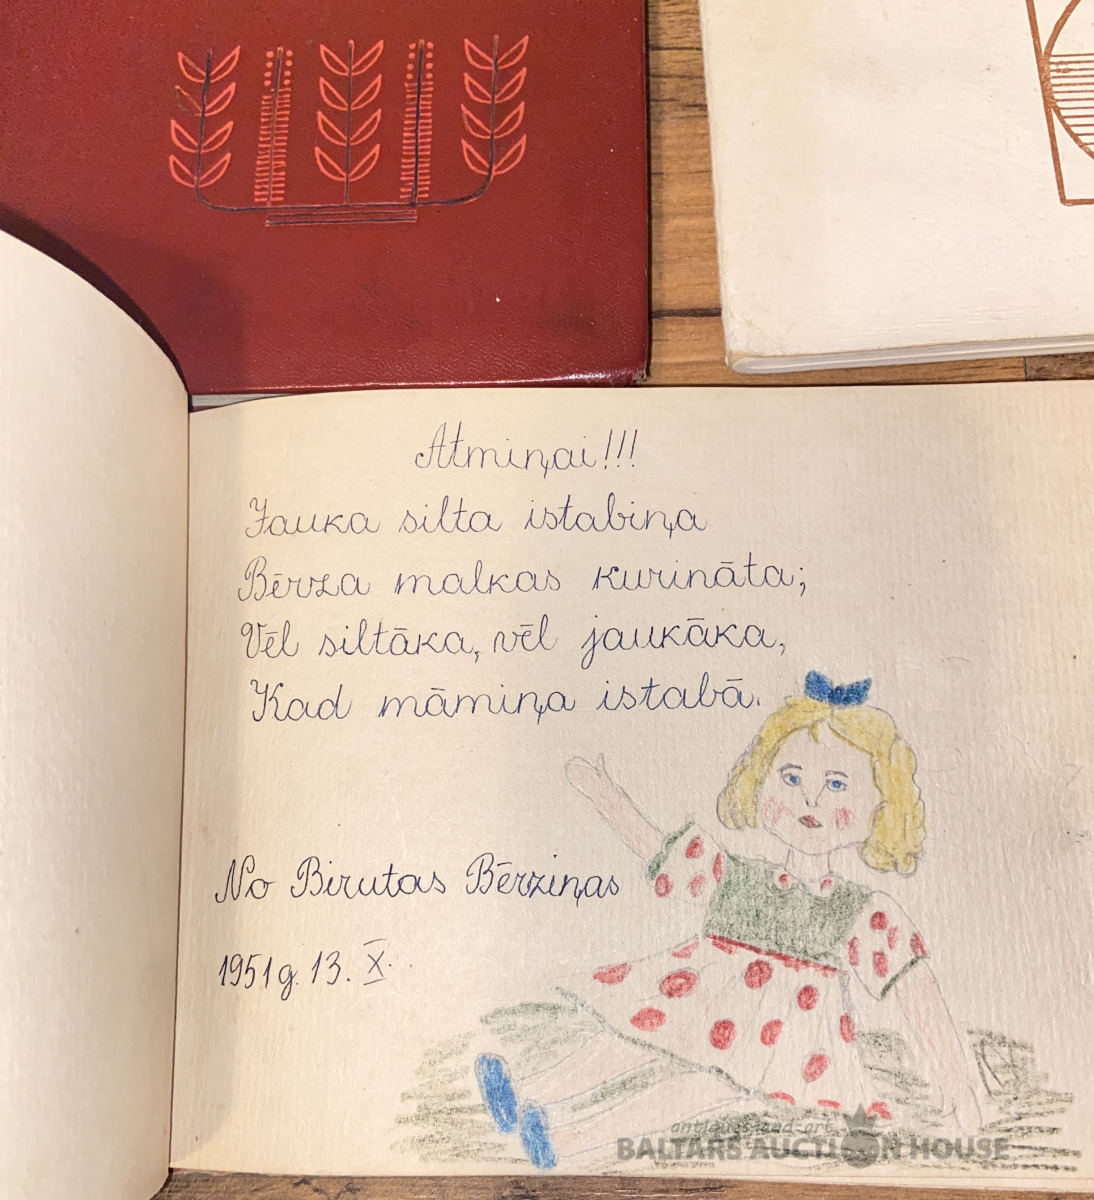 Atmiņai!!!
Jauka silta istabiņa
Bērza malkas kurināta;
Vēl siltāka, vēl jaukāka,
Kad māmiņa istabā.
No Birutas Bērziņas
1951 g. 13. X.
antiques and art
BALTARS AUCTION HOUSE